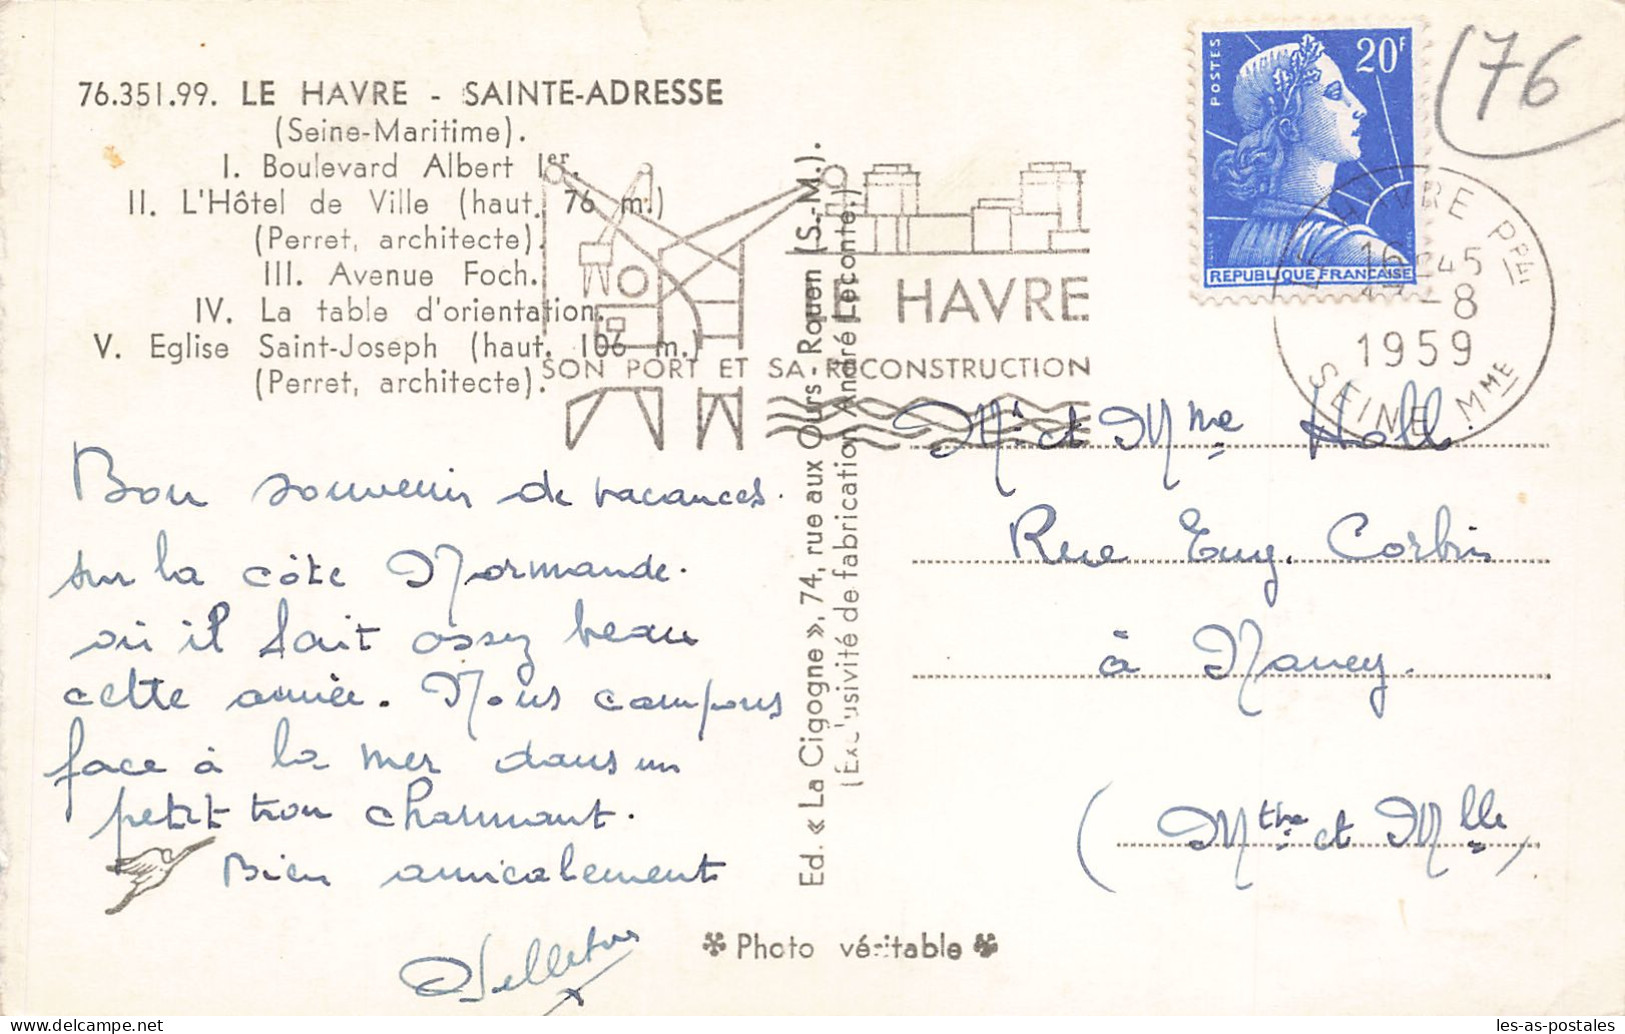 76.351.99. LE HAVRE - SAINTE-ADRESSE
(Seine-Maritime).
I. Boulevard Albert Ier.
II. L'Hôtel de Ville (haut. 76 m.)
(Perret, architecte).
III. Avenue Foch.
IV. La table d'orientation.
V. Eglise Saint-Joseph (haut. 106 m.)
(Perret, architecte).
LE HAVRE
SON PORT ET SA RECONSTRUCTION
POSTES
20F
REPUBLIQUE FRANCAISE
(76
LE HAVRE Ppal
16H45
-8
1959
SEINE Mme
Bon souvenir de vacances
sur la côte Normande.
où il fait assez beau
cette année. Nous campons
face à la mer dans un
petit trou charmant.
Bien amicalement
Ed. « La Cigogne », 74, rue aux Ours - Rouen (S.-M.).
(Exclusivité de fabrication André Leconte)
Mr et Mme Holl
Rue Eug. Corbin
à Nancy.
(Mthe et Mlle)
Photo véritable
les-as-postales